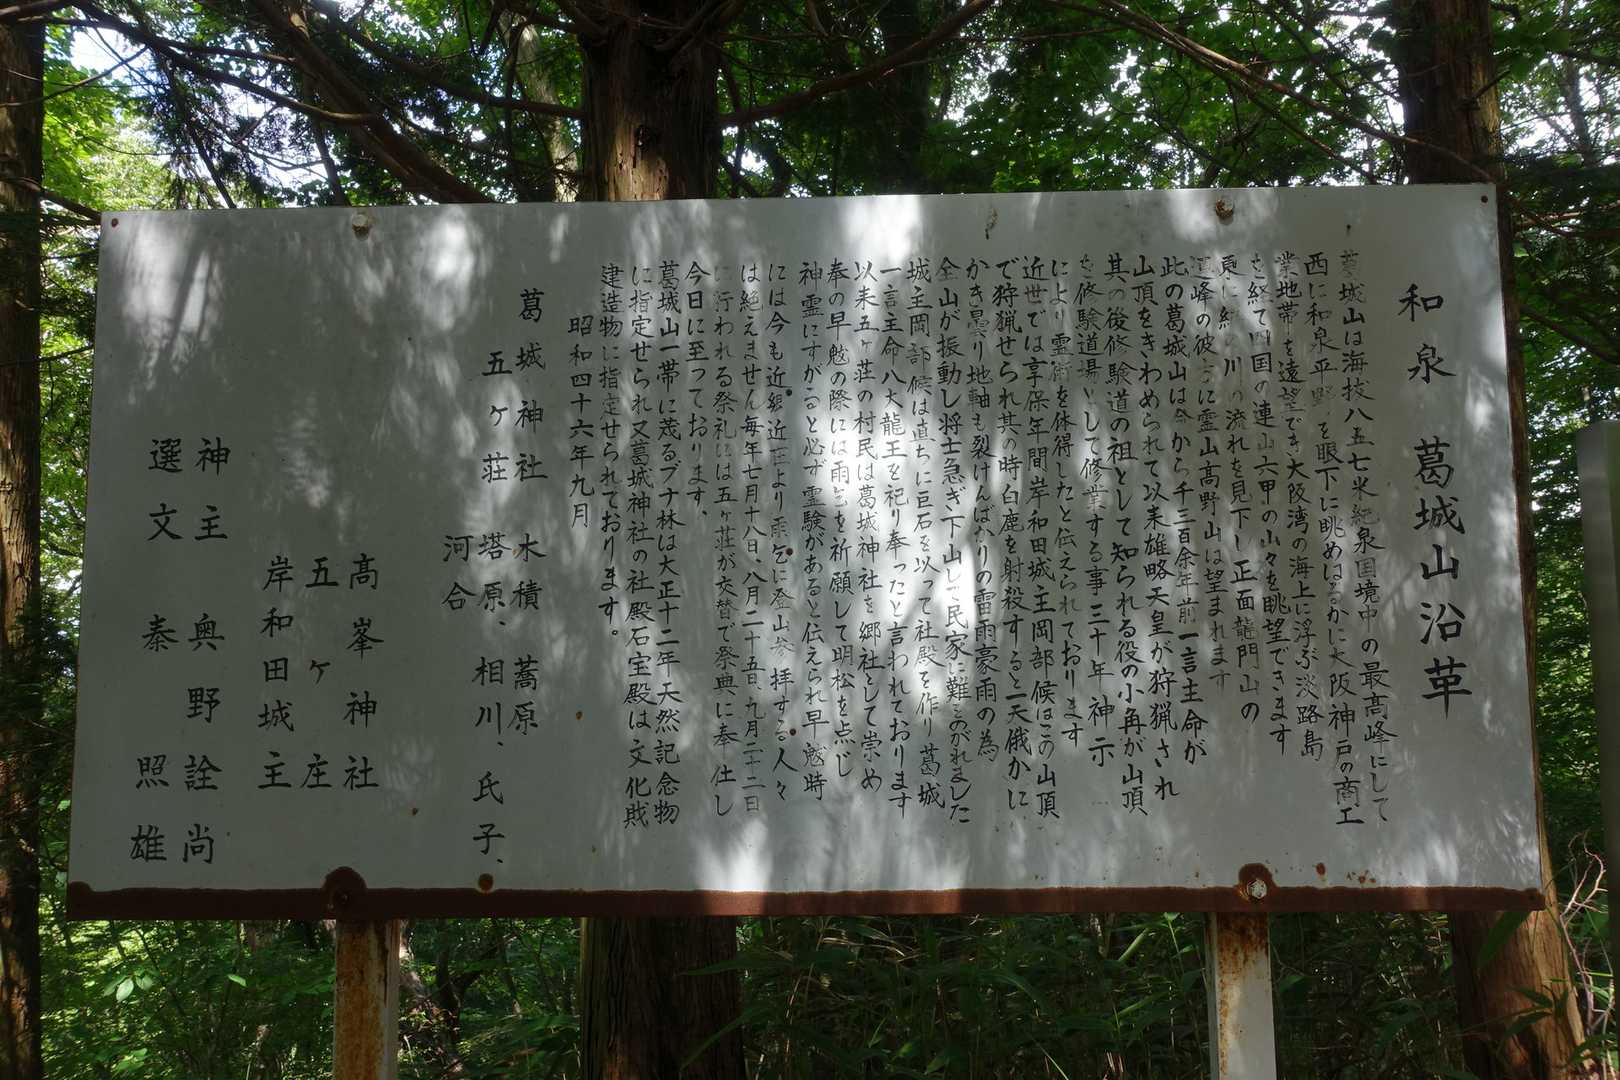 和泉 葛城山沿革
葛城山は海抜八五七米紀泉国境中の最高峰にして
西に和泉平野を眼下に眺めはるかに大阪神戸の商工
業地帯を遠望でき大阪湾の海上に浮ぶ淡路島
を経て四国の連山六甲の山々を眺望できます
東に紀の川の流れを見下し正面龍門山の
連峰の彼方に霊山高野山は望まれます
此の葛城山は今から千三百余年前一言主命が
山頂をきわめられて以来雄略天皇が狩猟され
其の後修験道の祖として知られる役の小角が山頂
を修験道場として修業する事三十年神示
により霊術を体得したと伝えられております
近世では享保年間岸和田城主岡部候はこの山頂
で狩猟せられ其の時白鹿を射殺すると一天俄かに
かき曇り地軸も裂けんばかりの雷雨豪雨の為
全山が振動し将士急ぎ下山して民家に難をのがれました
城主岡部候は直ちに巨石を以って社殿を作り葛城
一言主命八大龍王を祀り奉ったと言われております
以来五ヶ荘の村民は葛城神社を郷社として崇め
奉の旱魃の際には雨乞を祈願して明松を点じ
神霊にすがると必ず霊験があると伝えられ旱魃時
には今も近郷近在より雨乞に登山参拝する人々
は絶えません毎年七月十八日、八月二十五日、九月二十二日
に行われる祭礼には五ヶ荘が交替で祭典に奉仕し
今日に至っております、
葛城山一帯に茂るブナ林は大正十二年天然記念物
に指定せられ又葛城神社の社殿石宝殿は文化財
建造物に指定せられております。
昭和四十六年九月
葛城神社 木積 蕎原
五ヶ荘 塔原、相川、氏子、
河合
高峯神社
五ヶ庄
岸和田城主
神主 奥野詮尚
選文 秦照雄